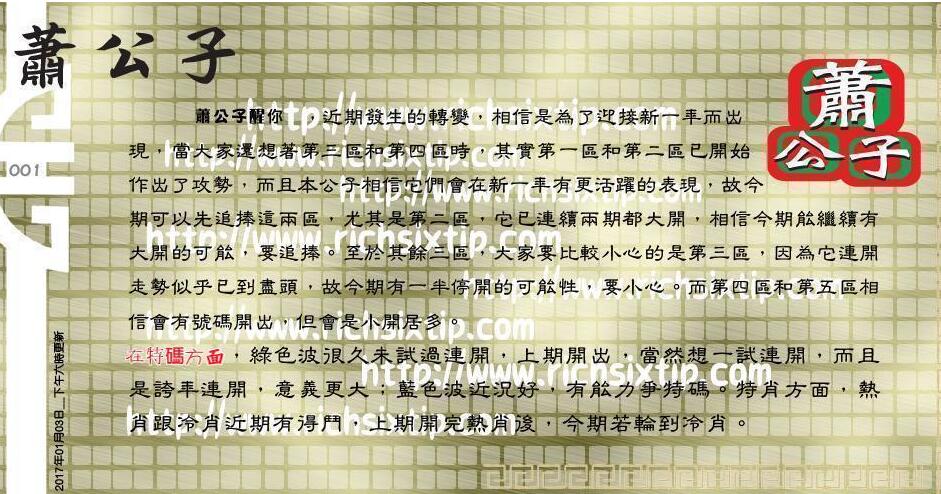 蕭公子
蕭
公子
001
蕭公子醒你：，近期發生的轉變，相信是為了迎接新一年而出
現，當大家還想著第三區和第四區時，其實第一區和第二區已開始
作出了攻勢，而且本公子相信它們會在新一年有更活躍的表現，故今
期可以先追捧這兩區，尤其是第二區，它已連續兩期都大開，相信今期能繼續有
大開的可能，要追捧。至於其餘三區，大家要比較小心的是第三區，因為它連開
走勢似乎已到盡頭，故今期有一半停開的可能性，要小心。而第四區和第五區相
信會有號碼開出，但會是小開居多。
在特碼方面，綠色波很久未試過連開，上期開出，當然想一試連開，而且
是誇年連開，意義更大；藍色波近況好，有能力爭特碼。特肖方面，熱
肖跟冷肖近期有得鬥，上期開完熱肖後，今期若輪到冷肖。
2017年01月03日 下午六時更新
http://www.richsixtip.com
www.richsixtip.com
http://www.richsixtip.com
http://www.richsixtip.com
http://www.richsixtip.com
http://www.richsixtip.com
http://www.richsixtip.com